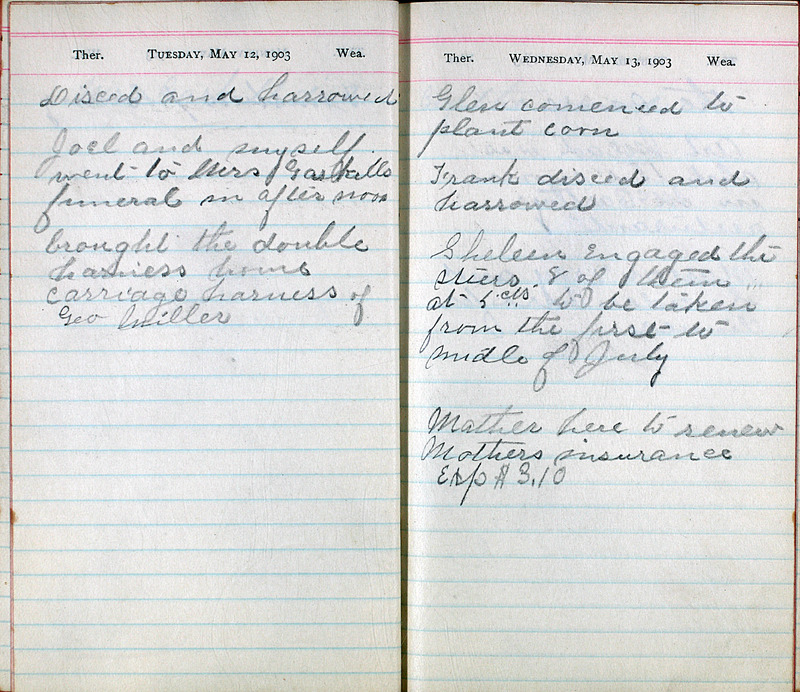 Ther. Tuesday, May 12, 1903 Wea.
Disced and harrowed
Joel and myself
went to Mrs Gaskills
funeral in after noon
brought the double
harness home
carriage harness of
Geo Miller
Ther. Wednesday, May 13, 1903 Wea.
Glen comenced to
plant corn
Frank disced and
harrowed
Engaged the
steers. 8 of them
at 5 cts to be taken
from the first to
midle of July
Mather here to renew
Mothers insurance
Exp $3.10